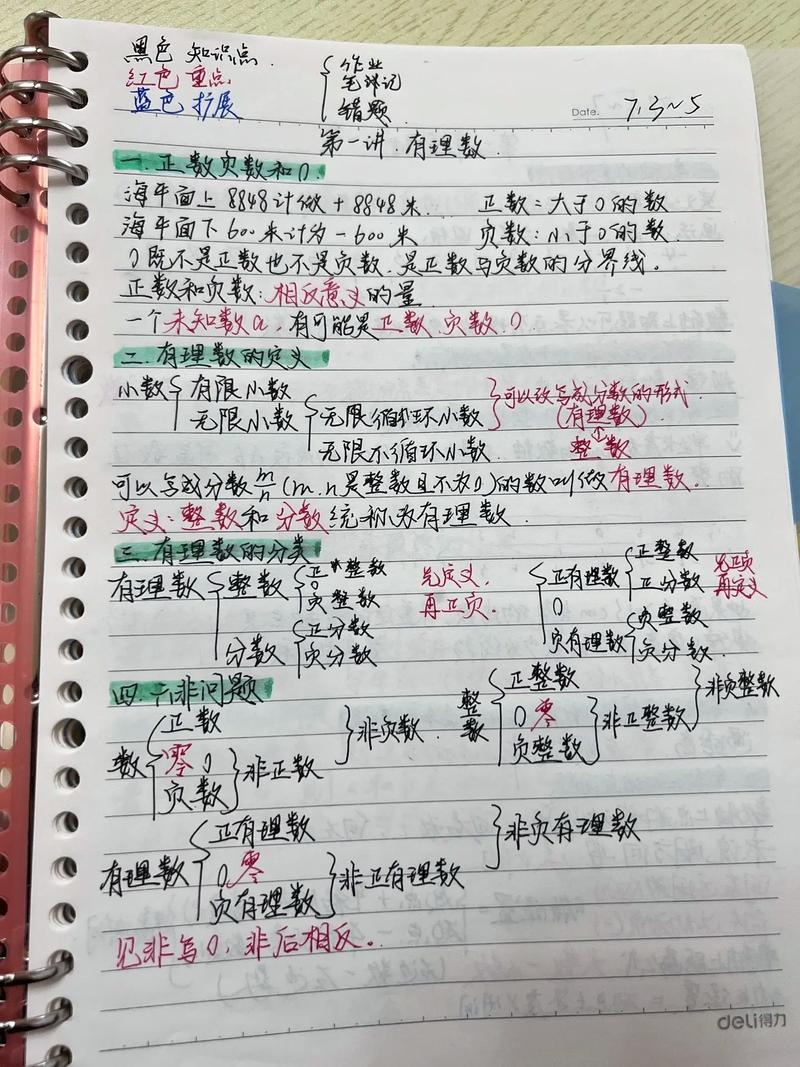 黑色 知识点
红色 重点
蓝色 扩展
{ 作业
笔记
错题
Date. 7.3~5
第一讲.有理数.
一.正数负数和0.
海平面上8848计做+8848米. 正数:大于0的数
海平面下600米计为-600米 负数:小于0的数.
0既不是正数也不是负数.是正数与负数的分界线。
正数和负数:相反意义的量
一个未知数a,有可能是正数.负数.0
二.有理数的定义
小数{ 有限小数
无限小数{ 无限循环小数
无限不循环小数.
}可以改写成分数的形式.
(有理数)
↕
整数
可以写成分数m/n(m.n是整数且n不为0)的数叫做有理数.
定义:整数和分数统称为有理数.
三.有理数的分类
有理数{ 整数{ 正整数
0
负整数
分数{ 正分数
负分数
先定义.
再正负.
{ 正有理数{ 正整数
正分数
0
负有理数{ 负整数
负分数.
先正负
再定义
四.六非问题
数{ 正数
零 0
负数
}非正数
}非负数.
整数{ 正整数
0 零
负整数
}非正整数
}非负整数
有理数{ 正有理数
0 零
负有理数
}非正有理数
}非负有理数
见非写0,非后相反。
deli得力